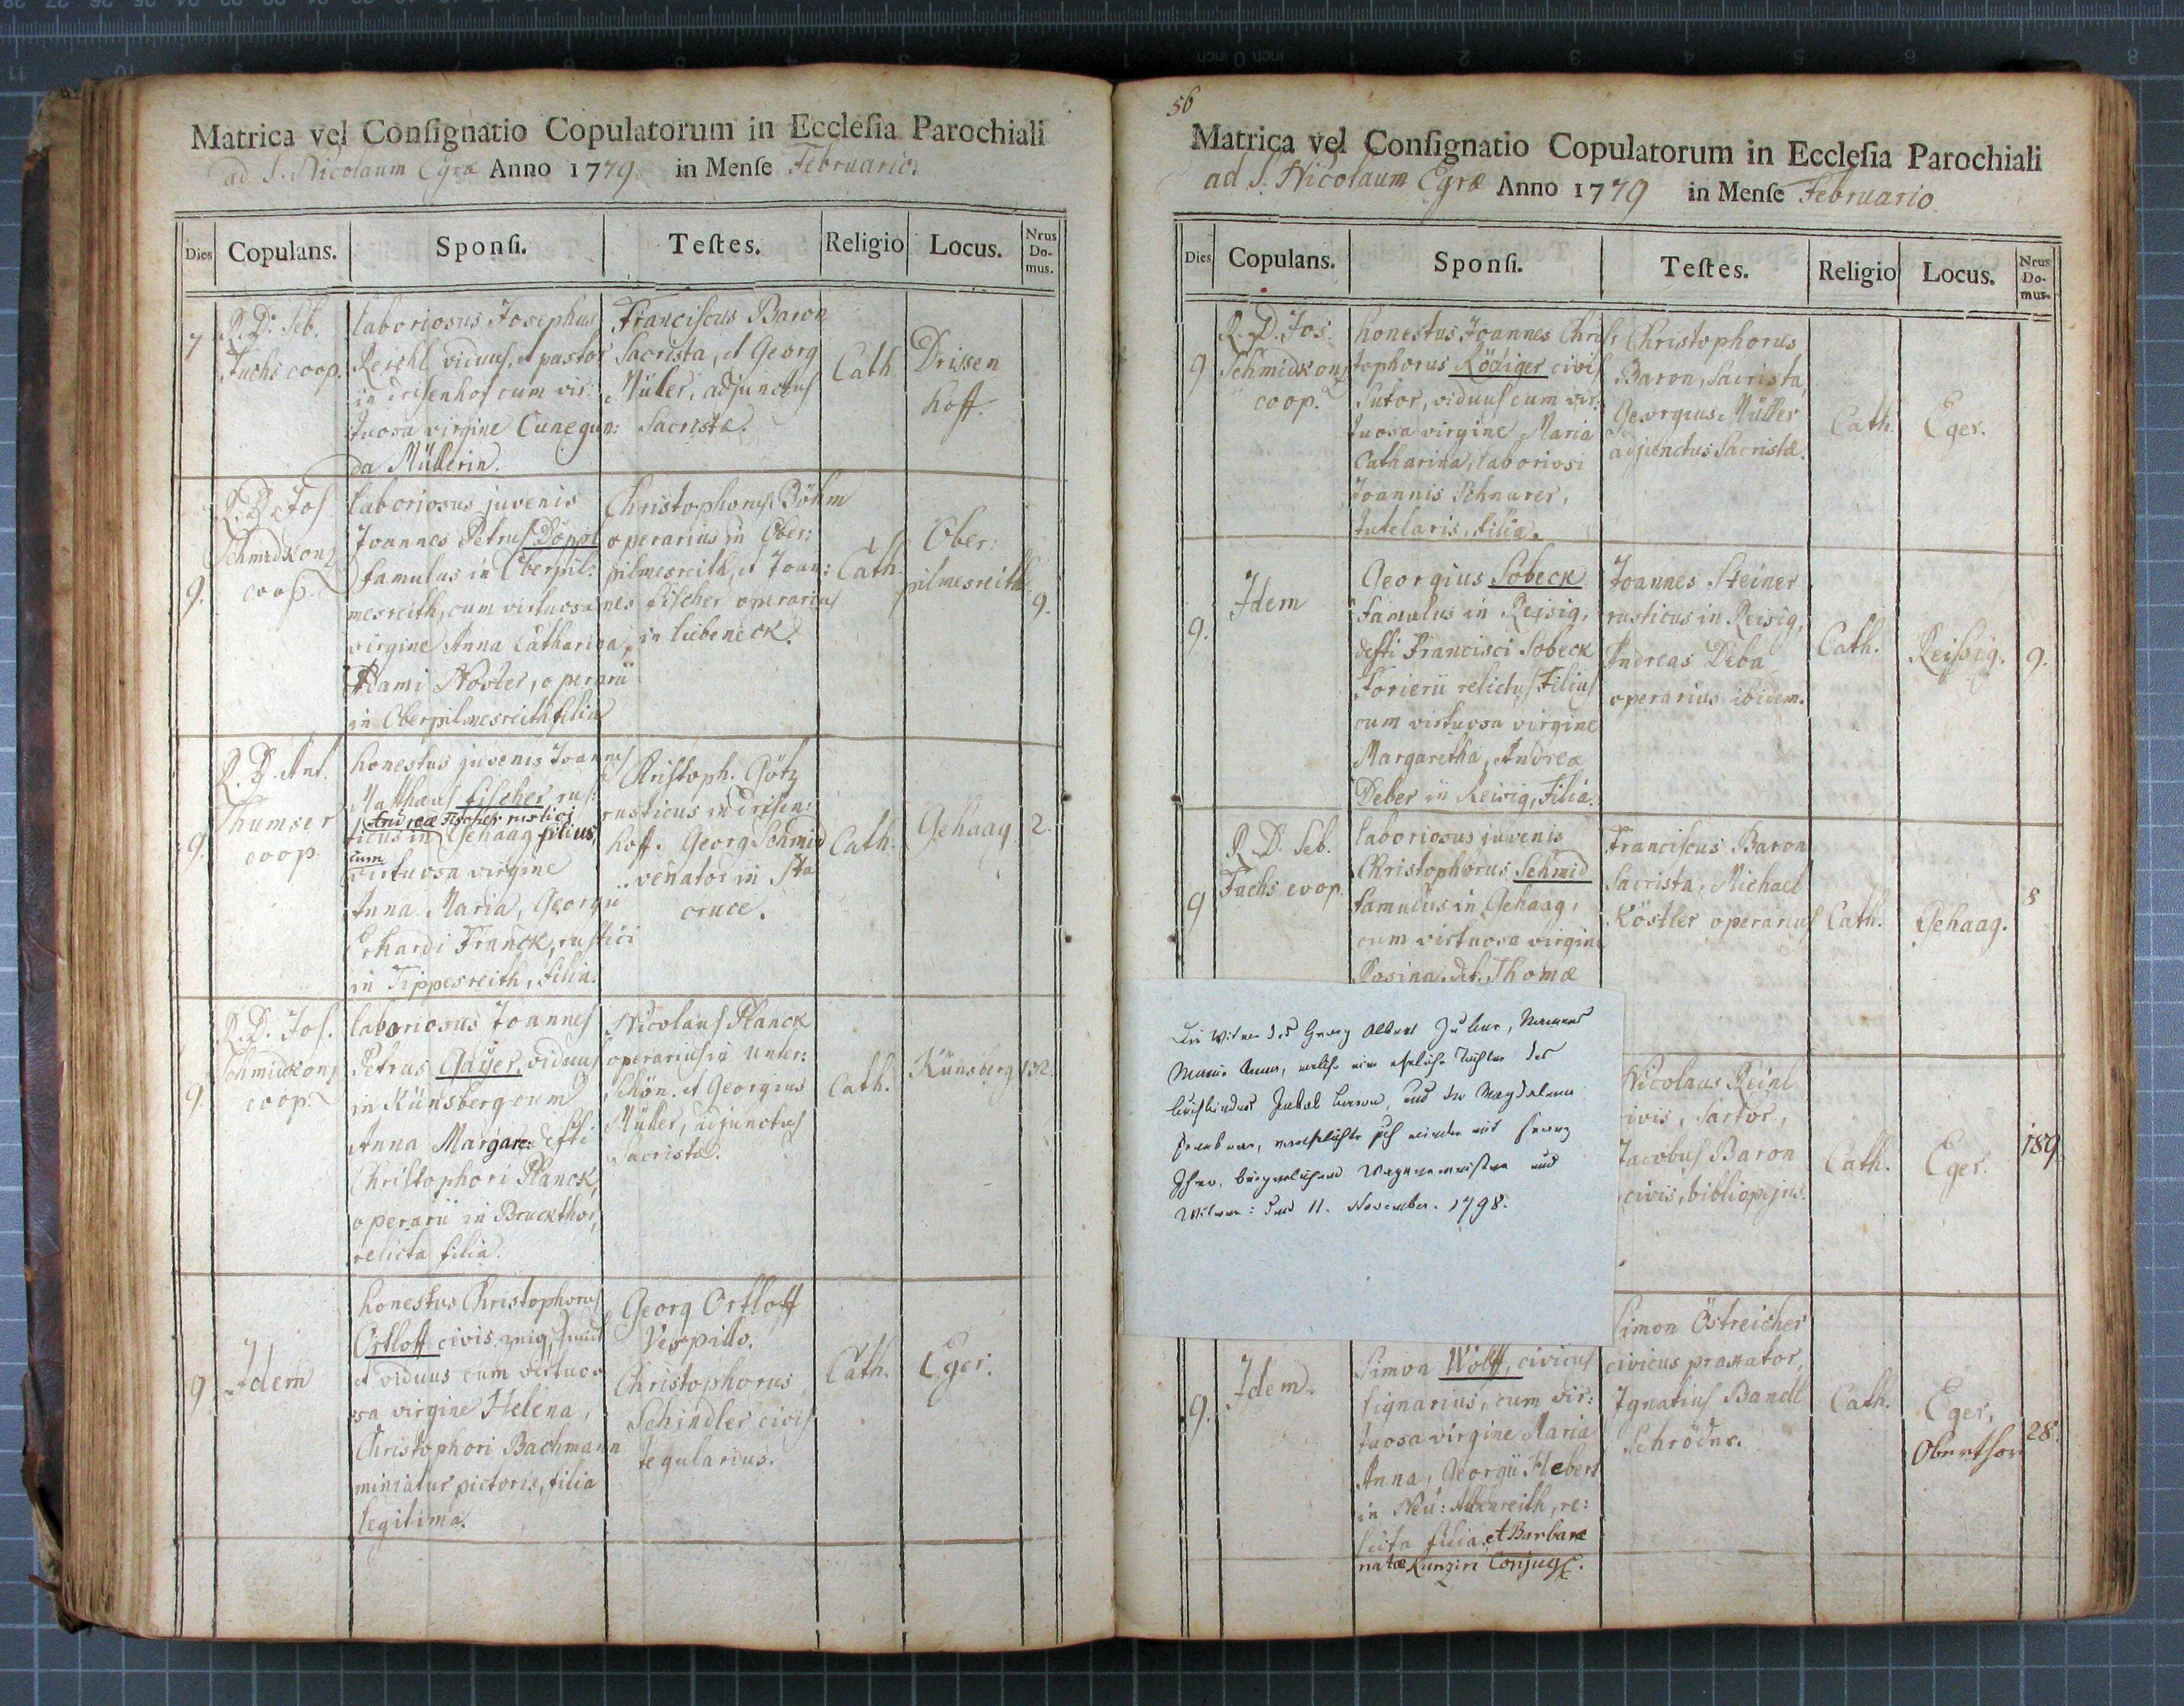 Matrica vel Conſignatio Copulatorum in Eccleſia Parochiali
ad S. Nicolaum Egræ Anno 1779. in Menſe Februario.
Dies Copulans. Sponſi. Teſtes. Religio Locus. Nrus Do- mus.
7
R. D. Seb.
Fuchs coop.
laboriosus Josephus
Reichl viduus, et pastor
in drisenhof cum vir:
tuosa virgine Cunegun:
da Müllerin.
Franciscus Baron
Sacrista, et Georg
Müler, adjunctus
Sacristæ.
Cath.
Drissen
hoff.
9.
R. D. Jos
Schmidkonz
coop.
laboriosus juvenis
Joannes Petrus Döppl
famulus in Oberpil:
mesreith, cum virtuosa
virgine Anna Catharina,
Adami Köstler, operarii
in Oberpilmesreith filia
Christophorus Böhm
operarius in Ober:
pilmesreith, et Joan:
nes fischer operarius
in liebeneck.
Cath.
Ober:
pilmesreith
9.
9.
R. D. Ant.
Thumser
coop.
honestus juvenis Joannes
Mathæus fischer rus:
Andreæ Fischer rustici
ticus in Gehaag filius,
cum
virtuosa virgine
Anna Maria, Georgii
Erhardi Franck, rustici
in Tippesreith, filia.
Christoph. Götz
rusticus in drisen:
hoff. Georg Schmid
venator in Sta
cruce.
Cath.
Gehaag
2.
9.
R. D. Jos.
Schmidkonz
coop.
laboriosus Joannes
Petrus Gaÿer, viduus
in Künsberg cum
Anna Margare: defti
Christophori Planck,
operarii in Bruckthor,
relicta filia.
Nicolaus Planck
operarius in unter:
Schön. et Georgius
Müller, adjunctus
Sacristæ.
Cath.
Künsberg
132.
9
Idem
honestus Christophorus
Ortloff civis, zeugschmidt
et viduus cum virtuo:
sa virgine Helena,
Christophori Bachmann
miniatur pictoris, filia
legitima.
Georg Ortloff
Vespillo.
Christophorus
Schindler civis
tegularius.
Cath.
Eger.
56
Matrica vel Conſignatio Copulatorum in Eccleſia Parochiali
ad S. Nicolaum Egræ Anno 1779 in Menſe Februario
Dies Copulans. Sponſi. Teſtes. Religio Locus. Nrus Do- mus.
9
R. D. Jos.
Schmidkonz
coop.
honestus Joannes Chris:
tophorus Rödiger civis
Sutor, viduus cum vir:
tuosa virgine Maria
Catharina, laboriosi
Joannis Schnurer,
tutelaris, filia.
Christophorus
Baron, Sacrista,
Georgius Müller
adjunctus Sacristæ.
Cath.
Eger.
9.
Idem
Georgius Sobeck
famulus in Reisig,
defti Francisci Sobeck
Forierii relictus Filius
cum virtuosa virgine
Margaretha, Andreæ
Deber in Reisig, Filia.
Joannes Steiner
rusticus in Reisig,
Andreas Deba
operarius ibidem.
Cath.
Reissig.
9.
9
R. D. Seb.
Fuchs coop.
laboriosus juvenis
Christophorus Schmid
famulus in Gehaag,
cum virtuosa virgine
Rosina, def. Thomæ
Franciscus Baron
Sacrista, Michael
Köstler operarius
Cath.
Gehaag.
8
Die Witwe des Georg Albert Huber, Namens
Maria Anna, welche eine eheliche Tochter des
Buchbinders Jakob Baron, und der Magdalena
verehelichte sich wieder mit Franz
bürgerlichen Wagnermeister und
Witwer: den 11. November. 1798.
Nicolaus Reinl
civis, Sartor,
Jacobus Baron
civis, bibliopejus.
Cath.
Eger.
189
9.
Idem.
Simon Wolff, civicus
lignarius, cum vir:
tuosa virgine Maria
Anna, Georgii Hebert
in Neu: Albenreith, re:
licta filia. et Barbaræ
natæ Kunzin Conjug:
Simon Östreicher
civicus praxator,
Ignatius Bandl
Schröder.
Cath.
Eger,
Oberthor
28.